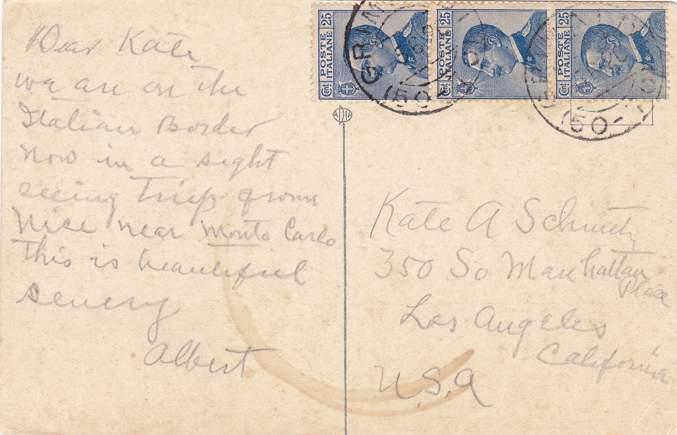 Dear Kate
we are on the
Italian Border
now in a sight
seeing Tripp from
Nice near Monto Carlo
this is beautiful
senery
Albert
POSTE ITALIANE
25
Cent
POSTE ITALIANE
25
Cent
POSTE ITALIANE
25
Cent
GRIM
(50-
(50-
Kate A Schmitz
350 So Manhattan
Place
Los Angeles
California
U.S.A